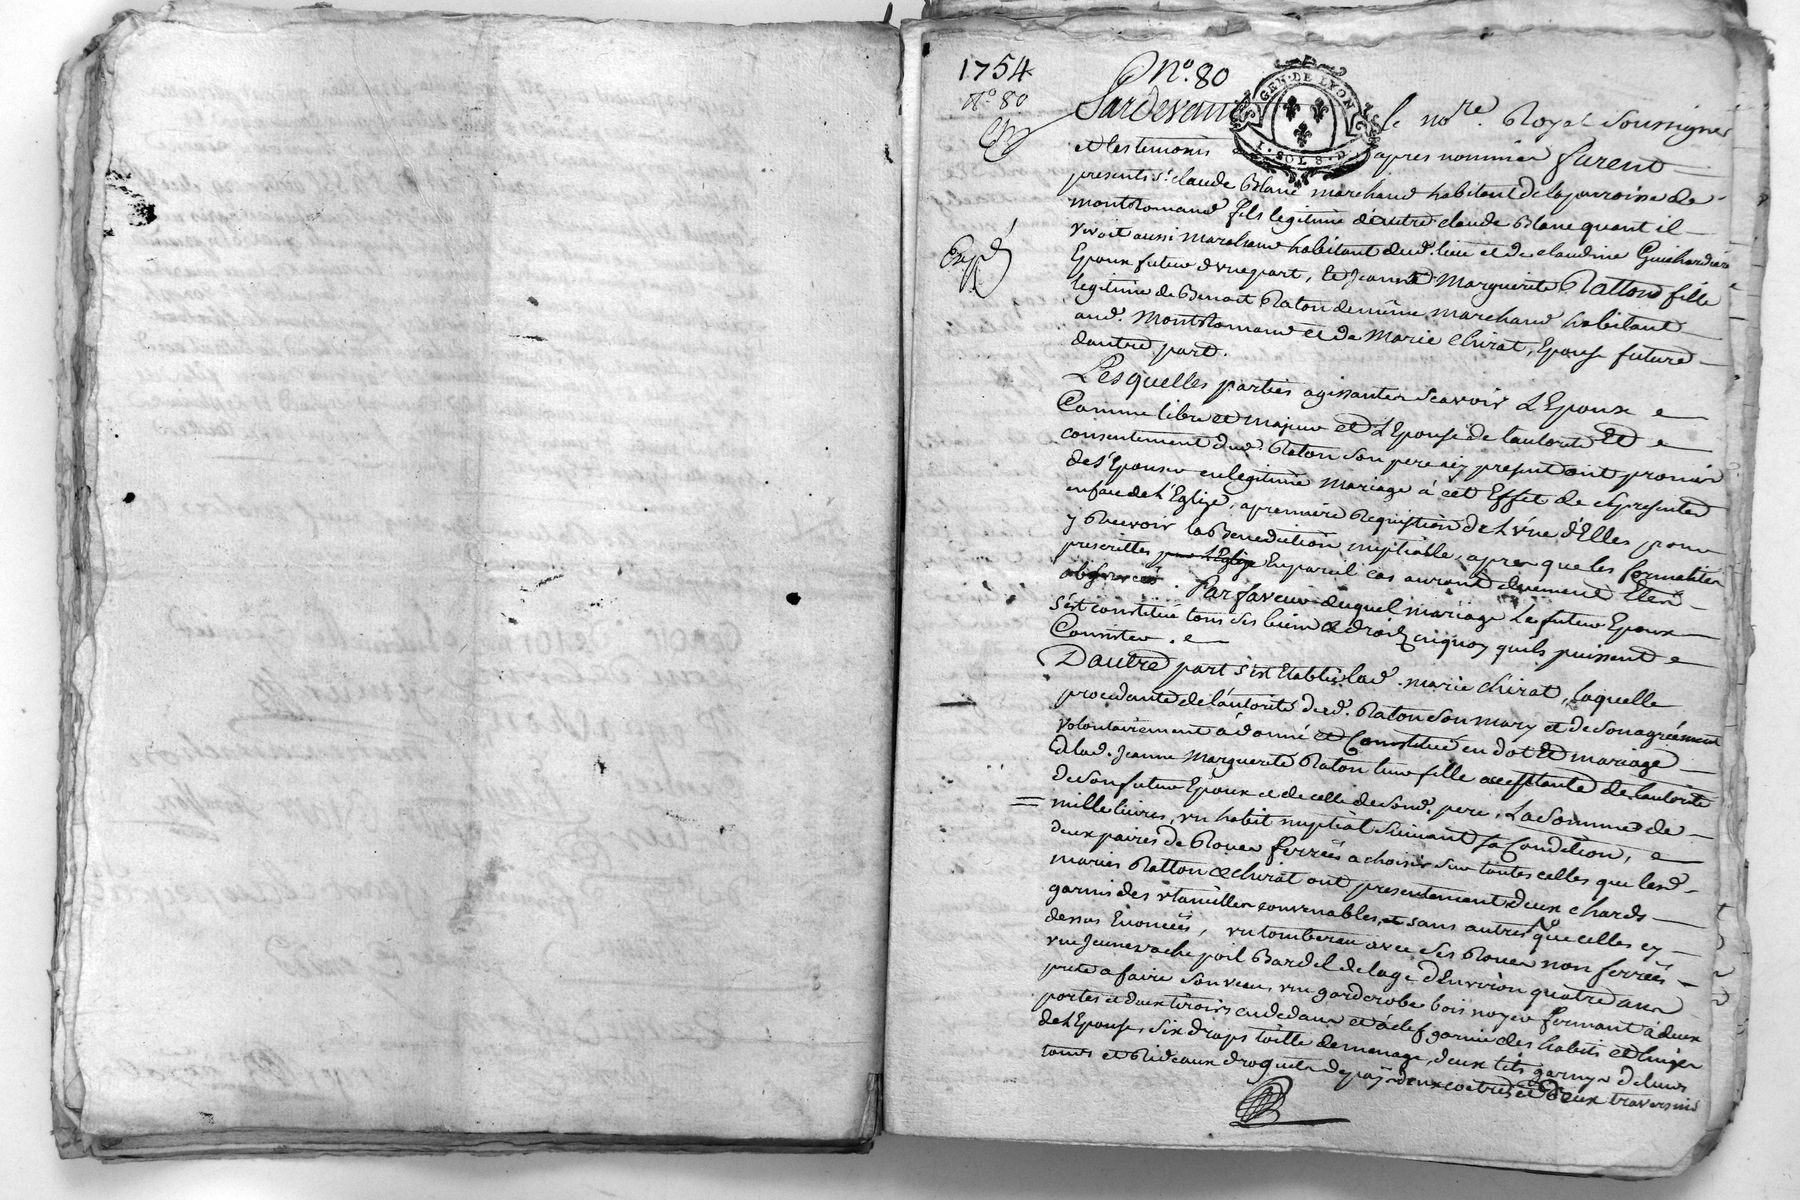 1754
N.° 80
N.° 80
GEN. DE LYON
1. SOL 8. D.
Pardevant le no.re Royal soussigné
et les temoins apres nommés furent
presents s.r claude Blanc marchand habitant de la parroisse de
montromand fils legitime d'autre claude Blanc quant il
vivoit aussi marchand habitant dud. lieu et de claudine Guichard
Expé
Epoux futur d'une part, et Jeanne Marguerite Ratton fille
legitime de Benoit Raton de même marchand habitant
aud. Montromand et de Marie chirat, Epouse future
dautre part.
Lesquelles parties agissantes scavoir L'Epoux
Comme libre et majeur et L'Epouse de l'autorité et
consentement dud. Raton son pere icy present ont promis
de s'Epouser en legitime mariage à cet Effet de se presenter
en face de L'Eglise, a premiere Requisition de L'une d'Elles pour
y Recevoir la Benediction nuptialle, apres que les formalites
prescrittes par l'Eglise En pareil cas auront duement Eté
observées. Par faveur duquel mariage Le futur Epoux
s'est constitué tous ses biens & droits en quoy quils puissent
Consister.
Dautre part s'est Etablie lad. marie chirat, laquelle
procedante de l'autorité dud. Raton son mary et de son agreément
volontairement à donné et Constitué en dot et mariage
à lad. Jeanne Marguerite Raton leur fille acceptante de l'autorité
de son futur Epoux et de celle de sond. pere, La somme de
mille livres, un habit nuptial suivant sa Condition,
deux paires de Roues ferrées a choisir sur toutes celles que lesd.
mariés Ratton & chirat ont presentement deux chards
garnis des utancilles convenables, et sans autres Roues que celles cy
dessus Enoncées, un tombereau avec ses Roues non ferrées
une Jeune vache poil Bardel de lage d'Environ quatre ans
prete a faire son veau, une garderobe bois noyer fermant à deux
portes et deux tiroirs en dedans et à clef garnie des habits et linges
de L'Epouse, six draps toille de menage, deux lits garnis de leurs
tours et Rideaux droguet de païs deux coetres et deux traversins